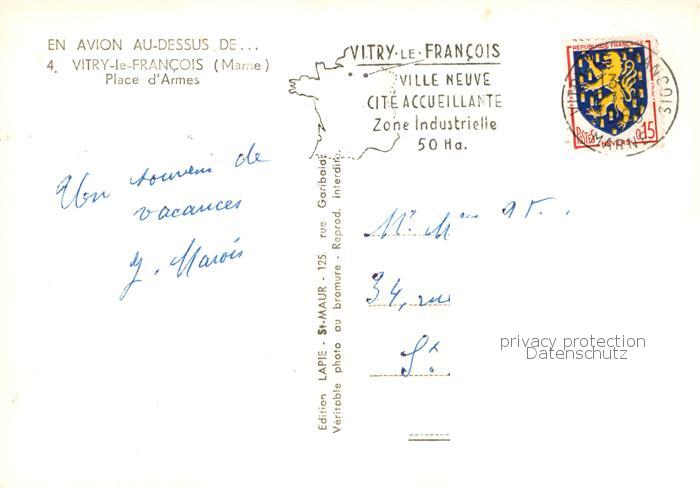 EN AVION AU-DESSUS DE...
4. VITRY-le-FRANÇOIS (Marne)
Place d'Armes
VITRY-LE-FRANÇOIS
VILLE NEUVE
CITÉ ACCUEILLANTE
Zone Industrielle
50 Ha.
REPUBLIQUE FRANÇAISE
POSTES
0,15
NEVERS
MARNE
Un souvenir de
vacances
J. Marois
Edition LAPIE - St-MAUR - 125, rue Garibaldi
Véritable photo au bromure - Reprod. interdite.
34, rue
St
privacy protection
Datenschutz